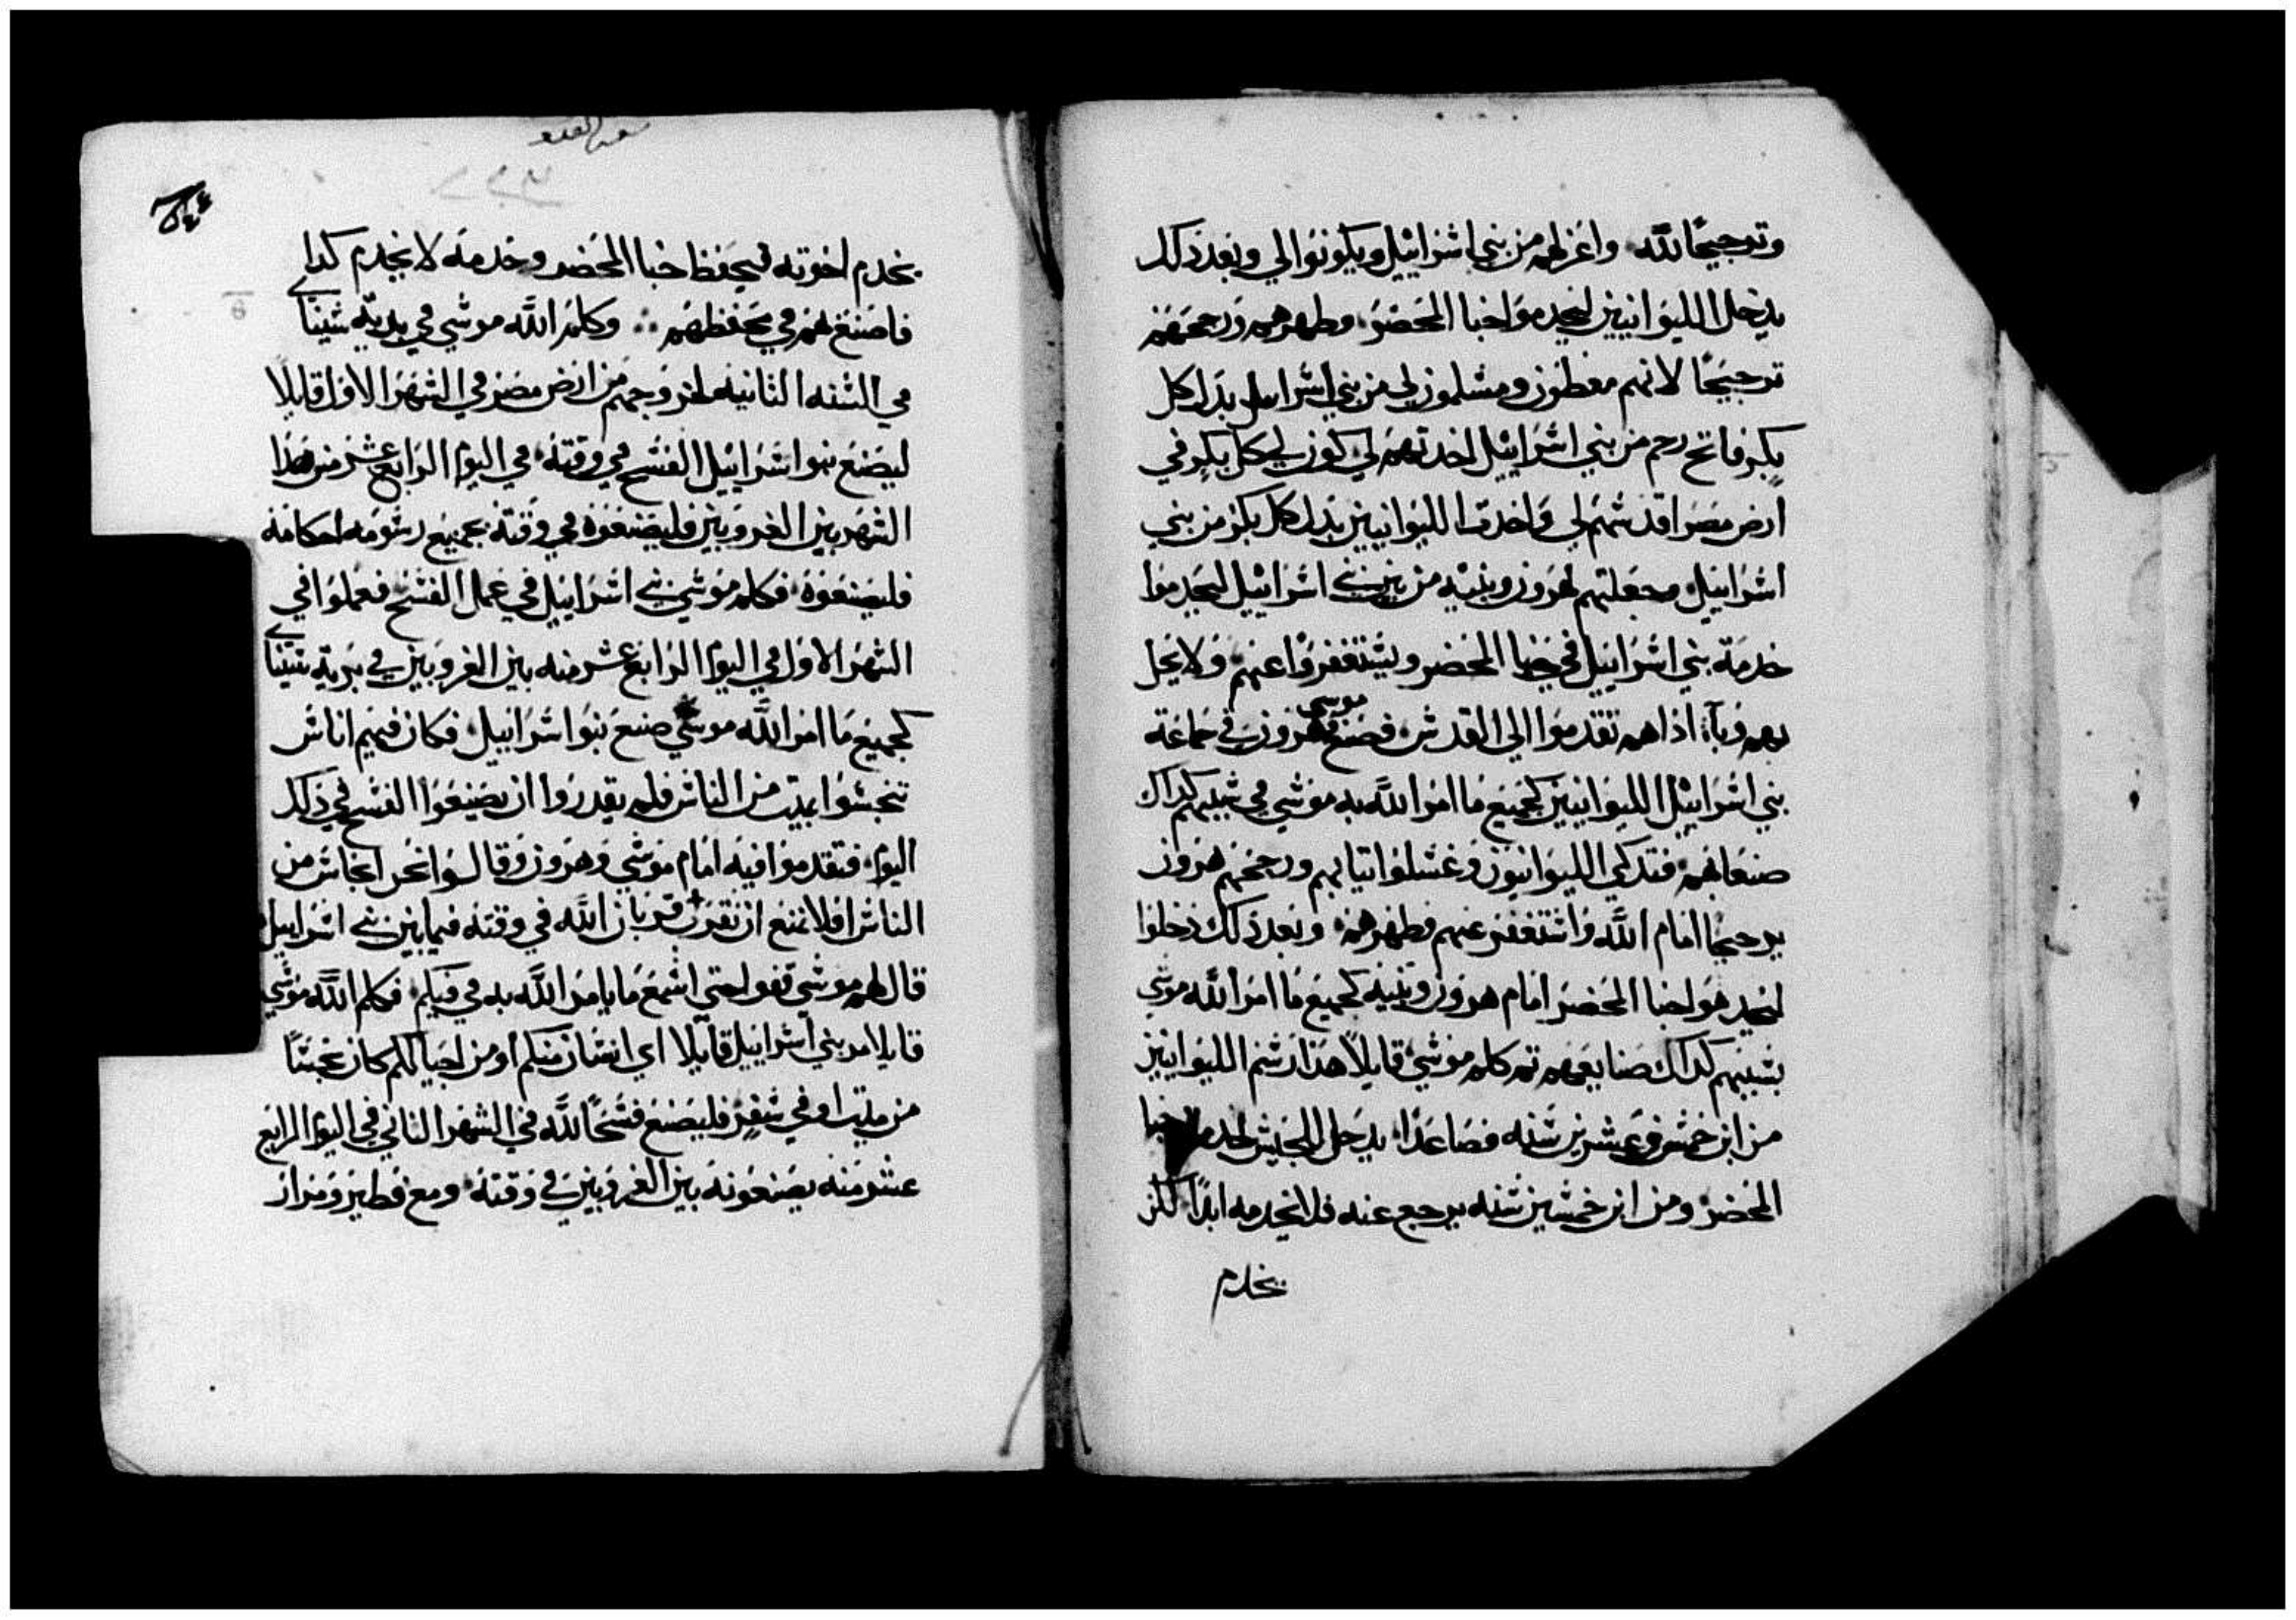 وترجيحًا لله واعزلهم من بني اشرائيل ويكونوا لي وبعد ذلك
يدخل الليوانيين ليخدموا خبا المحضر وطهرهم ورجحهم
ترجيحًا لانهم معطون ومسلمون لي من بني اشراييل بدل كل
بكر فاتح رحم من بني اشراييل اخدتهم لي كون لي كل بكر في
ارض مصر اقدشهم لي واخدت الليوانيين بدل كل بكر من بني
اشراييل وجعلتهم لهرون وبنيه من بين بني اشراييل ليخدموا
خدمة بني اشراييل في خبا المحضر ويشتغفروا عنهم ولا يحل
بهم وبآء اذا هم تقدموا الي القدش فصنع موسي هرون في جماعة
بني اشراييل الليوانيين كجميع ما امر الله به موشي في شببهم كداك
صنعا بهم فتدكي الليوانيون وغشلوا تيابهم ورجحهم هرون
ترجيحًا امام الله واشتغفر عنهم وطهرهم وبعد ذلك دخلوا
ليخدموا خبا المحضر امام هرون وبنيه كجميع ما امر الله موشي
بشببهم كداك صنا بهم تم كلم موشي قايلاً هدا رشم الليوانيين
من ابن خمش وعشرين شنه فصاعدًا يدخل الجيش لخدمة خبا
المحضر ومن ابن خمشين شنه يرجع عنه فلا يخدمه ابدًا لكن
يخدم
سفر العدد
يخدم اخوته ليحفظ خبا المحضر وخدمه لا يخدم كدا
فاصنع لهم في محفظهم وكلم الله موشي في برية شينا
في الشنه التانيه لخروجهم من ارض مصر في الشهر الاول قايلاً
ليصنع بنوا اشراييل الفشح في وقته في اليوم الرابع عشر من هدا
الشهر بين الغروبين فليصنعوه في وقته بجميع رشومه احكامه
فليصنعوه فكلم موشي بني اشراييل في عمل الفشح فعملوا في
الشهر الاول في اليوم الرابع عشر منه بين الغروبين في برية شينا
كجميع ما امر الله موشي صنع بنوا اشراييل فكان فيهم اناش
تنجشوا بميت من الناش فلم يقدروا ان يصنعوا الفشح في دلك
اليوم فتقدموا فيه امام موشي وهرون وقالوا نحن انجاش من
الناش افلا نمنع ان نقرب قربان الله في وقته فيما بين بني اشراييل
قال لهم موشي قفوا حتي اشمع ما يامر الله به في فيكم فكلم الله موشي
قايلا مر بني اشراييل قايلا اي انشان منكم او من اجيالكم كان نجشًا
من ميت او في شفر فليصنع فشحًا لله في الشهر التاني في اليوم الرابع
عشر منه يصنعونه بين الغروبين في وقته ومع فطير ومرار